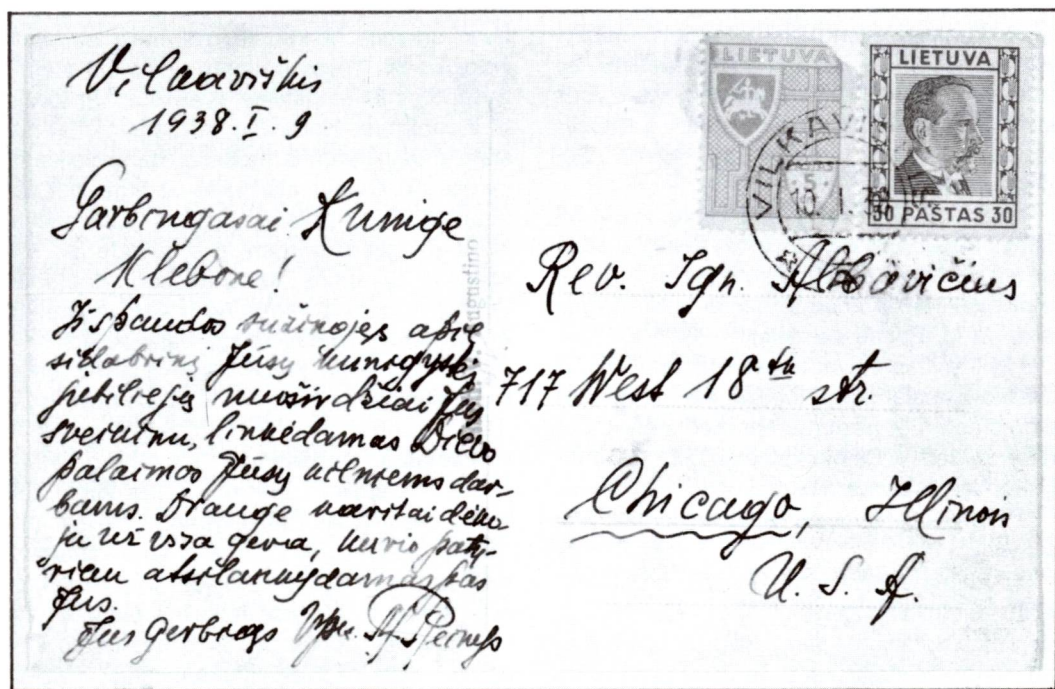 Vilkaviškis
1938.I.9
Garbingasai Kunige
Klebone!
Iš spaudos sužinojęs apie
sidabrinį Jūsų kunigystės
jubiliejų nuoširdžiai Jus
sveikinu, linkėdamas Dievo
palaimos Jūsų kilniems dar-
bams. Drauge karštai dėko-
ju už visa gera, kurio paty-
riau atsilankydamas pas
Jus.
Jus gerbiąs
LIETUVA
LIETUVA
30 PAŠTAS 30
VILKAVI
10.1.3
ugustino
Rev. Ign. Albavičius
717 West 18th str.
Chicago, Illinois
U. S. A.